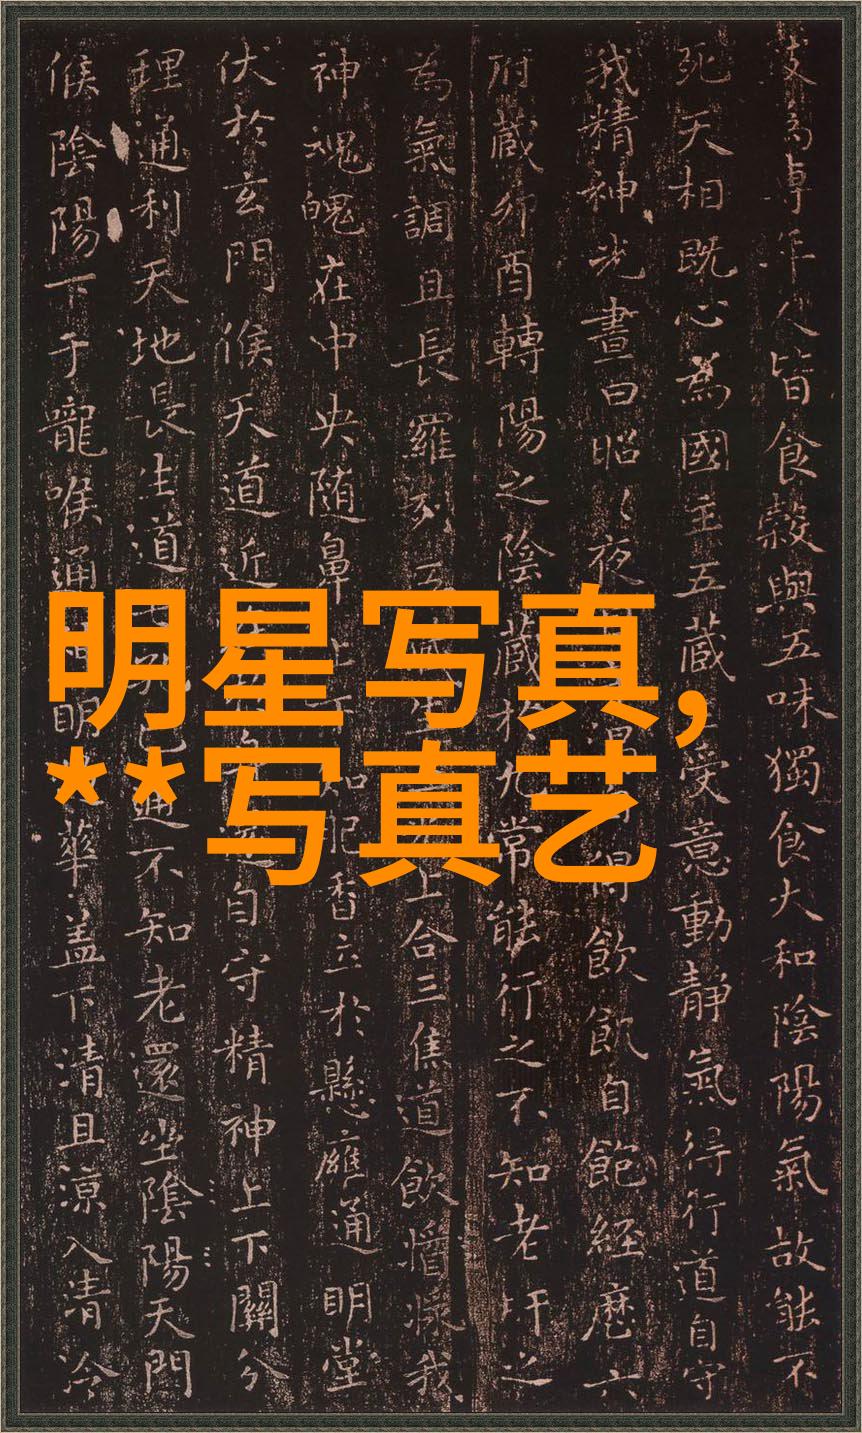 明星写真,
**写真艺
高專年人皆食穀與五味獨食大和陰陽氣故能不
死天相既心為國主五藏受意動靜氣得行道自守
我精神光晝日昭〻夜得飲飢自飽經歷六
府藏卯酉轉陽之陰藏於九常能行之不知老肝之
為氣調且長羅列五上合三焦道飲醬漿我
神魂魄在中央随鼻上下知香立於懸廱通明堂
伏於玄門候天道近自守精神上下關分
理通利天地長生道七孔已通不知老還坐陰陽天門
候陰陽下于嚨喉通明華盖下清且涼入清冷